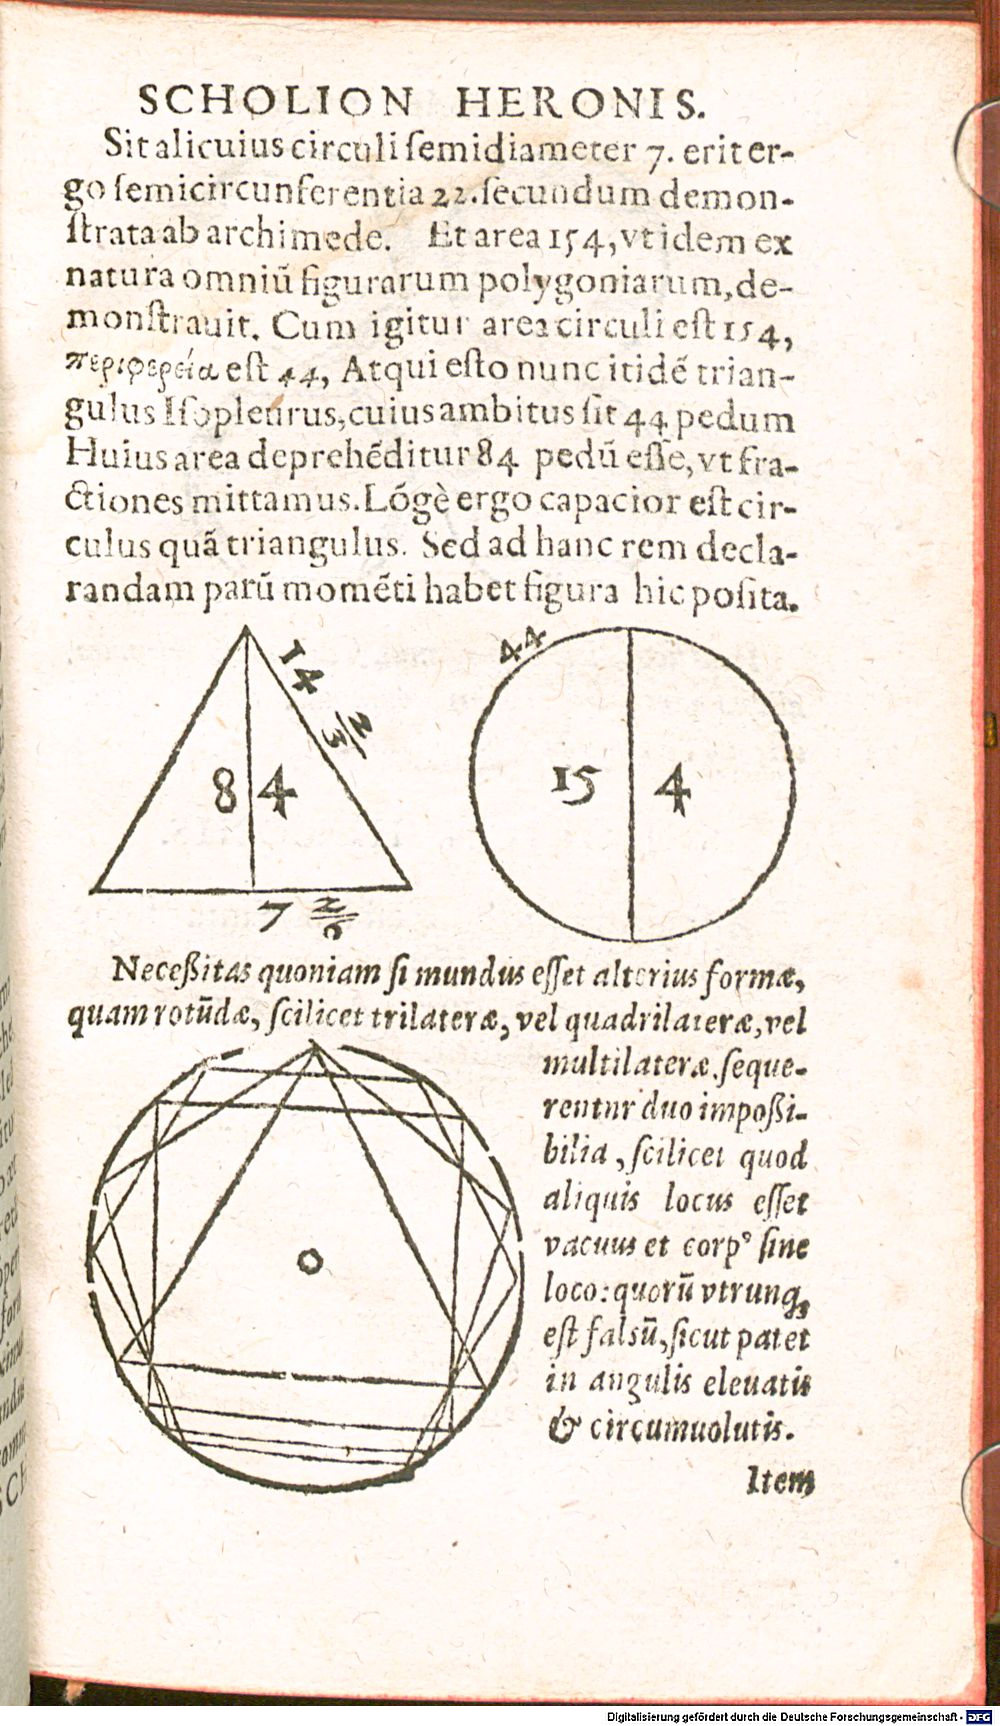 SCHOLION HERONIS.
Sit alicuius circuli ſemidiameter 7. erit er-
go ſemicircunferentia 22. ſecundum demon-
ſtrata ab archimede. Et area 154, vt idem ex
natura omniũ figurarum polygoniarum, de-
monſtrauit. Cum igitur area circuli eſt 154,
περιφερεία eſt 44, Atqui eſto nunc itidẽ trian-
gulus Iſopleurus, cuius ambitus ſit 44 pedum
Huius area deprehẽditur 84 pedũ eſſe, vt fra-
ctiones mittamus. Lõgè ergo capacior eſt cir-
culus quã triangulus. Sed ad hanc rem decla-
randam parũ momẽti habet figura hic poſita.
14 2/3
84
7 2/6
44
15 4
Neceßitas quoniam ſi mundus eſſet alterius formæ,
quam rotũdæ, ſcilicet trilateræ, vel quadrilateræ, vel
multilateræ. ſeque-
rentur duo impoßi-
bilia, ſcilicet quod
aliquis locus eſſet
vacuus et corpꝰ ſine
loco: quorũ vtrunqꝫ
eſt falsũ, ſicut patet
in angulis eleuatis
& circumuolutis.
O
Item
Digitalisierung gefördert durch die Deutsche Forschungsgemeinschaft - DFG